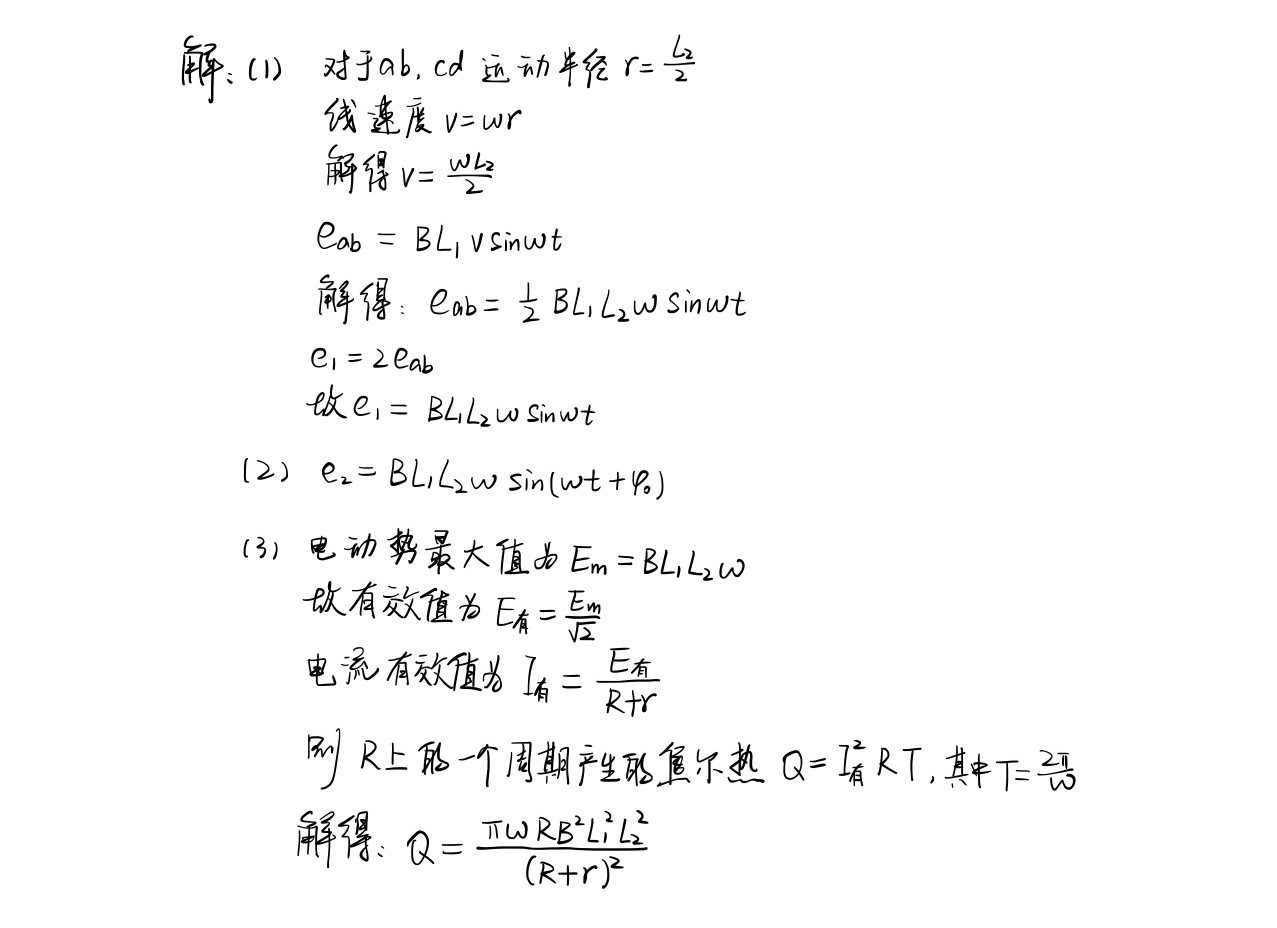 解：(1) 对于ab, cd 运动半径 r = L₂/2
线速度 v=ωr
解得 v= ωL₂/2
e_ab = BL₁vsinωt
解得：e_ab = 1/2 BL₁L₂ω sinωt
e₁ = 2e_ab
故e₁ = BL₁L₂ω sinωt
(2) e₂ = BL₁L₂ω sin(ωt+φ₀)
(3) 电动势最大值为 Eₘ = BL₁L₂ω
故有效值为 E有 = Eₘ/√2
电流有效值为 I有 = E有/(R+r)
则 R上的一个周期产生的焦尔热 Q = I有² RT, 其中T = 2π/ω
解得：Q = πωRB²L₁²L₂²/(R+r)²